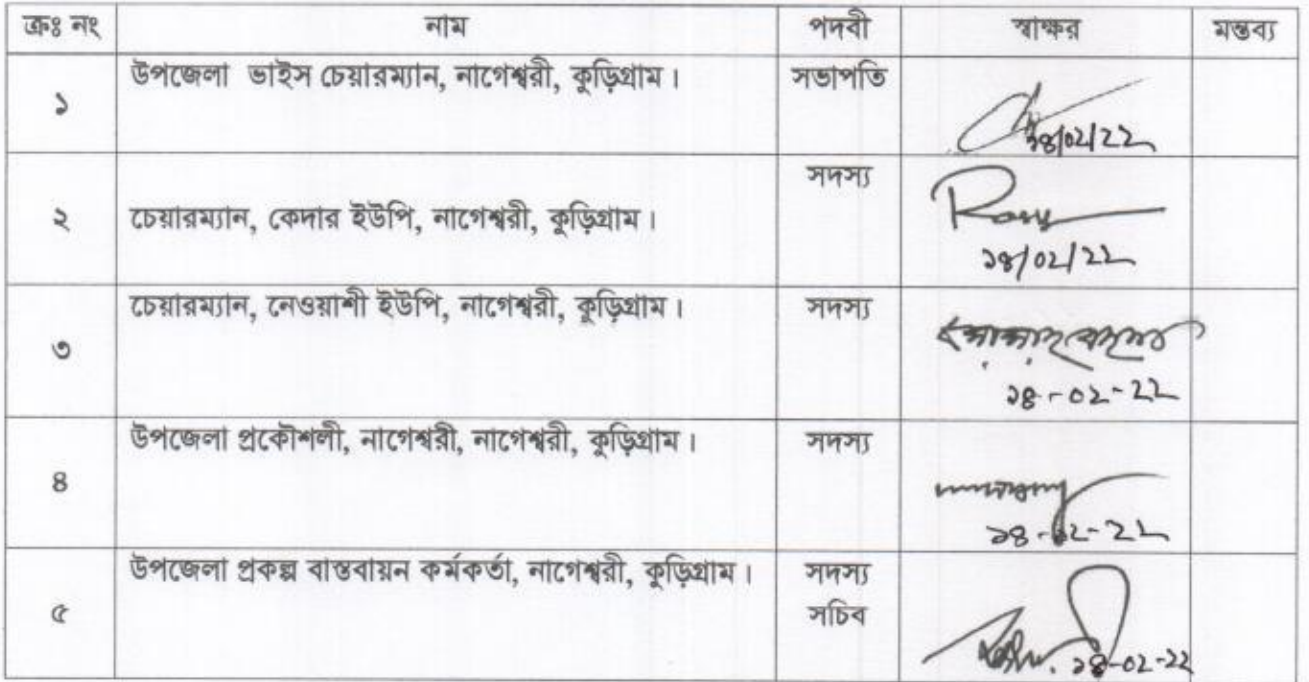 ক্রঃ নং নাম পদবী স্বাক্ষর মন্তব্য
১ উপজেলা ভাইস চেয়ারম্যান, নাগেশ্বরী, কুড়িগ্রাম। সভাপতি
১৪/০২/২২
২ চেয়ারম্যান, কেদার ইউপি, নাগেশ্বরী, কুড়িগ্রাম। সদস্য
১৪/০২/২২
৩ চেয়ারম্যান, নেওয়াশী ইউপি, নাগেশ্বরী, কুড়িগ্রাম। সদস্য
১৪-০২-২২
৪ উপজেলা প্রকৌশলী, নাগেশ্বরী, নাগেশ্বরী, কুড়িগ্রাম। সদস্য
১৪-০২-২২
৫ উপজেলা প্রকল্প বাস্তবায়ন কর্মকর্তা, নাগেশ্বরী, কুড়িগ্রাম। সদস্য
সচিব
১৪-০২-২২